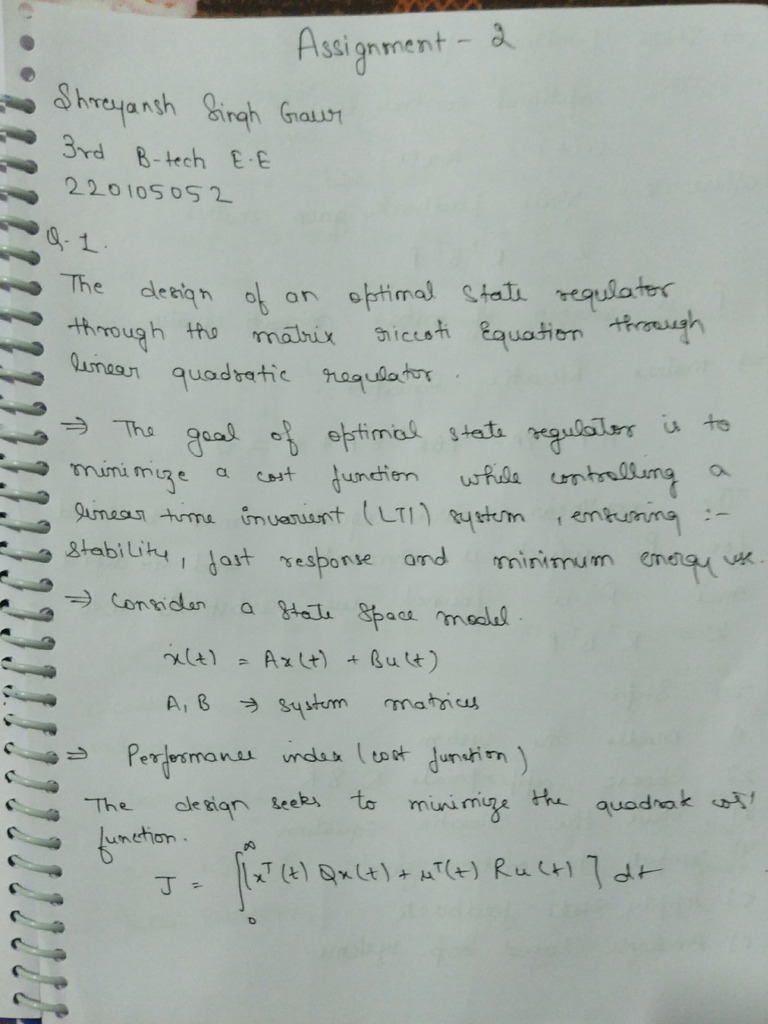 Assignment - 2
Shreyansh Singh Gaur
3rd B-tech E.E
220105052
Q-1.
The design of an optimal state regulator
through the matrix riccoti Equation through
linear quadratic regulator.
⇒ The goal of optimial state regulator is to
minimize a cost function while controlling a
linear time invarient (LTI) system, ensuring :-
Stability, fast response and minimum energy use.
⇒ Consider a State Space model.
ẋ(t) = Ax(t) + Bu(t)
A, B → System matrices
⇒ Performance index (cost function)
The design seeks to minimize the quadrak cost
function.
J = ∫₀^∞ [xᵀ(t) Qx(t) + uᵀ(t) Ru(t)] dt